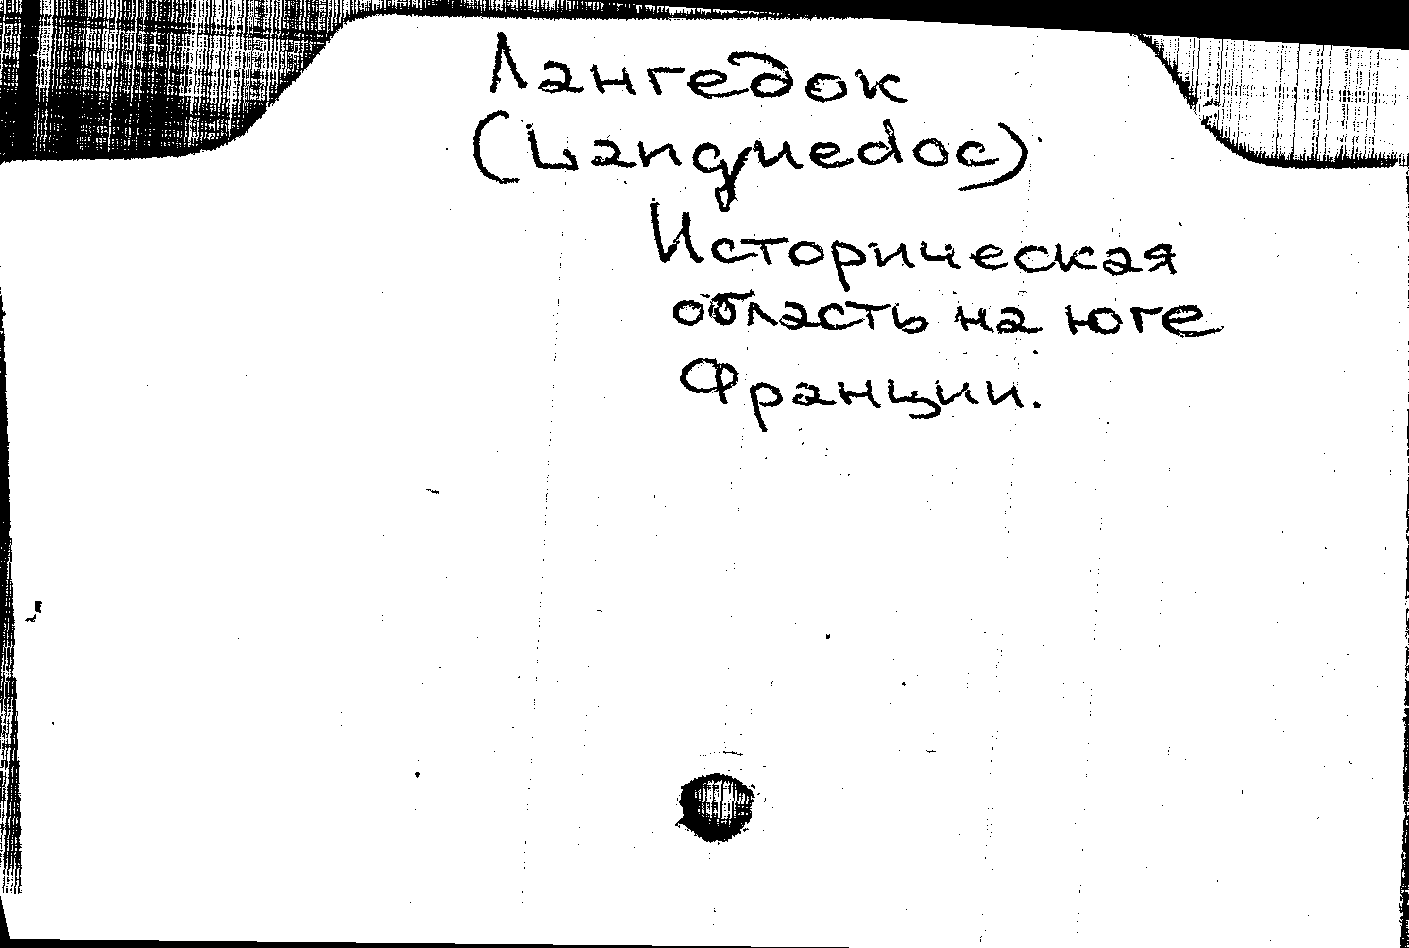 Лангедок
(Languedoc)
Историческая
область на юге
Франции.